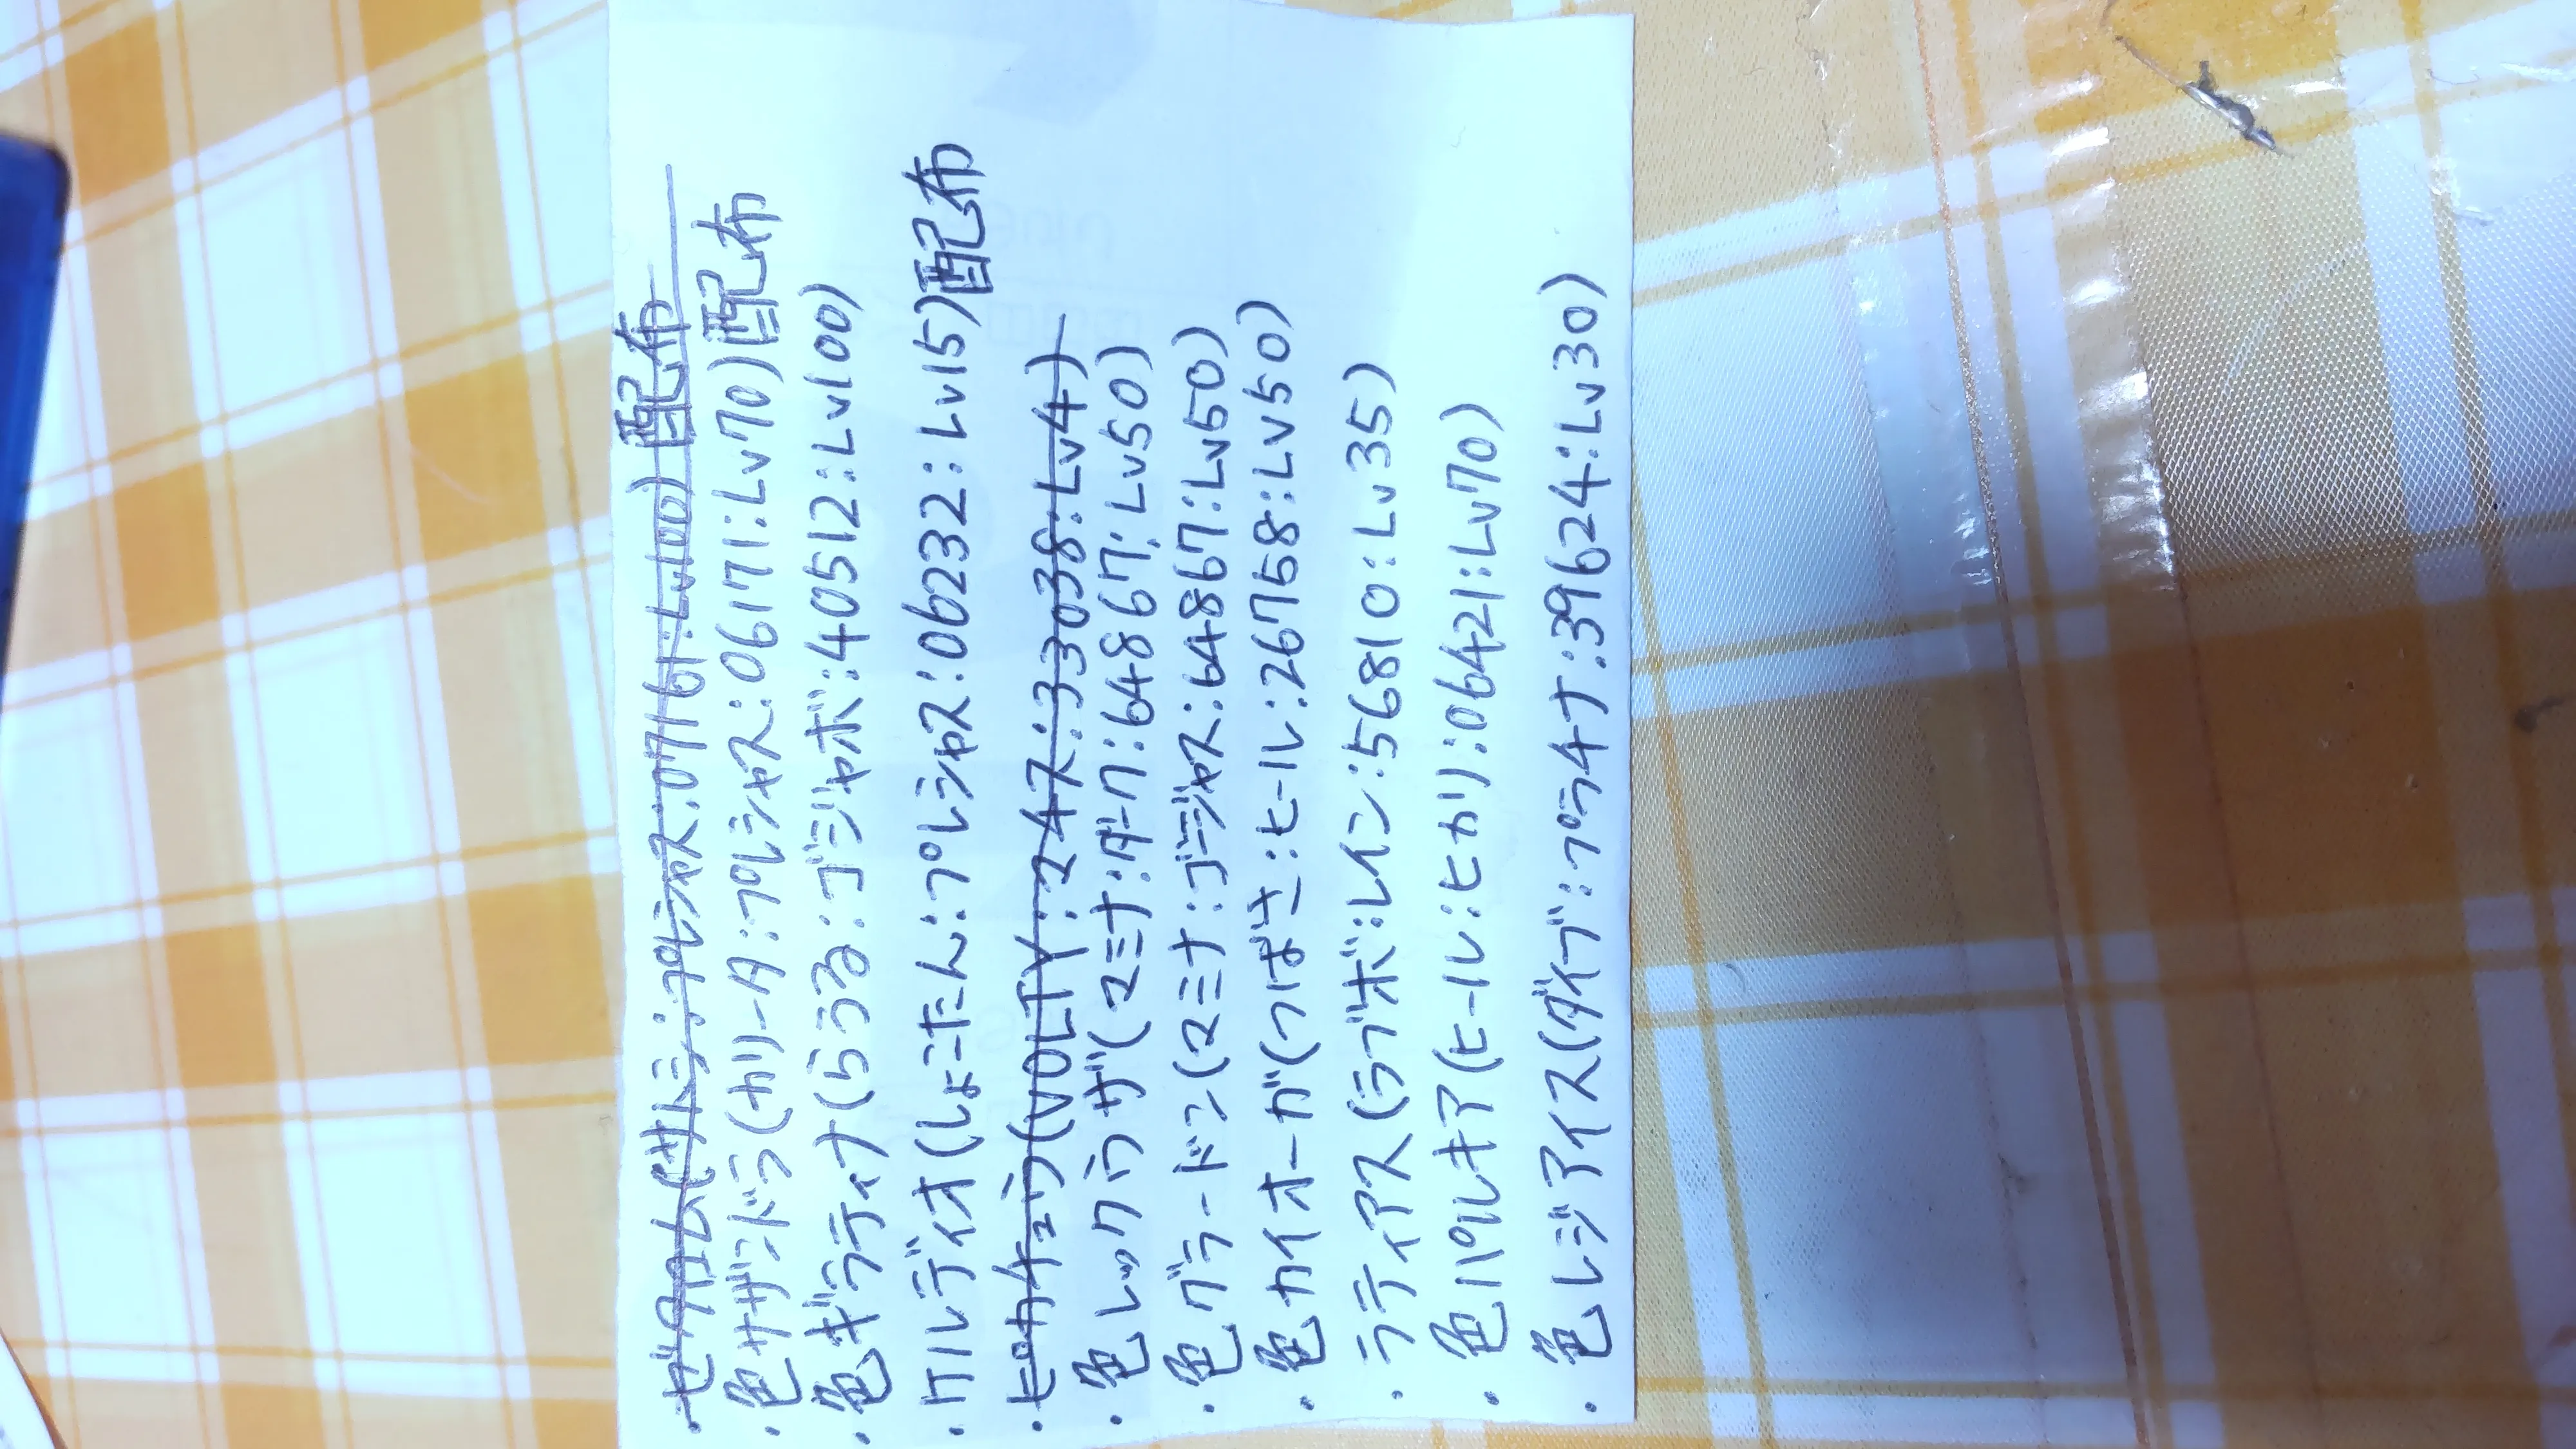 ・ゼクロム(サトシ:プレシャス:07161:Lv100)配布
・色サザンドラ(カリータ:プレシャス:06171:Lv70)配布
・色ギラティナ(らうる:ゴジャボ:40512:Lv100)
・ケルディオ(しょこたん:プレシャス:06232:Lv15)配布
・ピカチュウ(VOLTY:マイス:33038:Lv4)
・色レックウザ(マミナ:ダーク:64867:Lv50)
・色グラードン(マミナ:ゴージャス:64867:Lv50)
・色カイオーガ(つばさ:ヒール:26758:Lv50)
・ラティアス(ラブボ:レイン:56810:Lv35)
・色パルキア(ヒール:ヒカリ:06421:Lv70)
・色レジアイス(ダイブ:プラチナ:39624:Lv30)